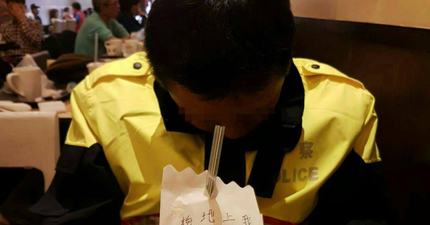 察
POLICE
地上我